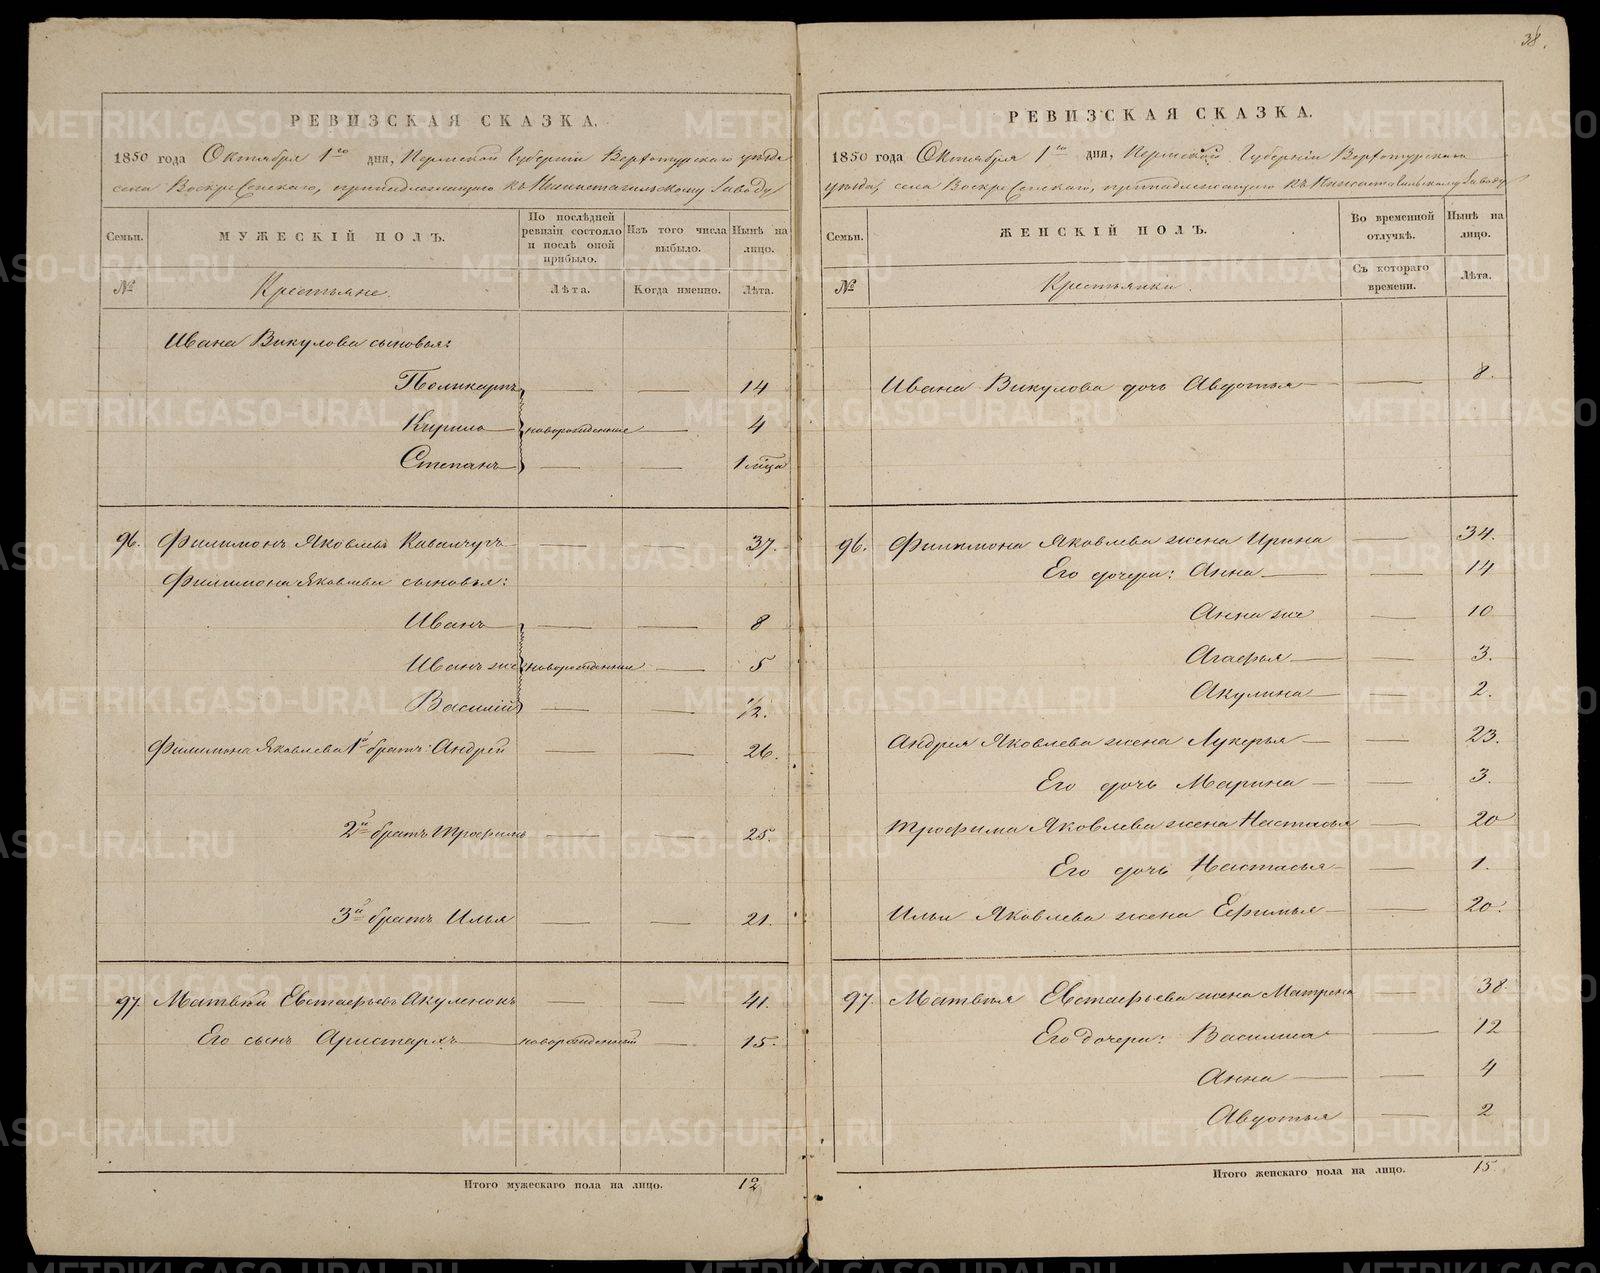 38.
РЕВИЗСКАЯ СКАЗКА.
1850 года Октября 1го дня, Пермской Губерніи Верхотурскаго уѣзда
села Воскресенскаго, принадлежащаго къ Нижнетагильскому Заводу
Семьи.
МУЖЕСКІЙ ПОЛЪ.
По послѣдней
ревизіи состояло
и послѣ оной
прибыло.
Изъ того числа
выбыло.
Нынѣ на
лицо.
№
Крестьяне.
Лѣта.
Когда именно.
Лѣта.
Ивана Викулова сыновья:
Поликарпъ — — 14
Кирило новорожденные — 4
Степанъ — — 1 мца
96. Филимонъ Яковлевъ Кавалчугъ — — 37.
Филимона Яковлева сыновья:
Иванъ — — 8
Иванъ же новорожденные — 5
Василій — — 1/2.
Филимона Яковлева 1й братъ: Андрей — — 26.
2й братъ Трофимъ — — 25.
3й братъ Илья — — 21.
97. Матвѣй Евстафьевъ Акуленокъ — — 41.
Его сынъ Аристархъ новорожденный — 15.
Итого мужескаго пола на лицо. 12
РЕВИЗСКАЯ СКАЗКА.
1850 года Октября 1го дня, Пермской Губерніи Верхотурскаго
уѣзда, села Воскресенскаго, принадлежащаго къ Нижнетагильскому Заводу
Семьи.
ЖЕНСКІЙ ПОЛЪ.
Во временной
отлучкѣ.
Нынѣ на
лицо.
№
Крестьянки.
Съ котораго
времени.
Лѣта.
Ивана Викулова дочь Авдотья — 8.
96. Филимона Яковлева жена Ирина — 34.
Его дочери: Анна — 14
Анна же — 10
Агафья — 3.
Акулина — 2.
Андрея Яковлева жена Лукерья — 23.
Его дочь Марина — 3.
Трофима Яковлева жена Настасья — 20
Его дочь Настасья — 1.
Ильи Яковлева жена Ефимья — 20.
97. Матвѣя Евстафьева жена Матрена — 38.
Его дочери: Василиса — 12
Анна — 4
Авдотья — 2
Итого женскаго пола на лицо. 15.
METRIKI.GASO-URAL.RU